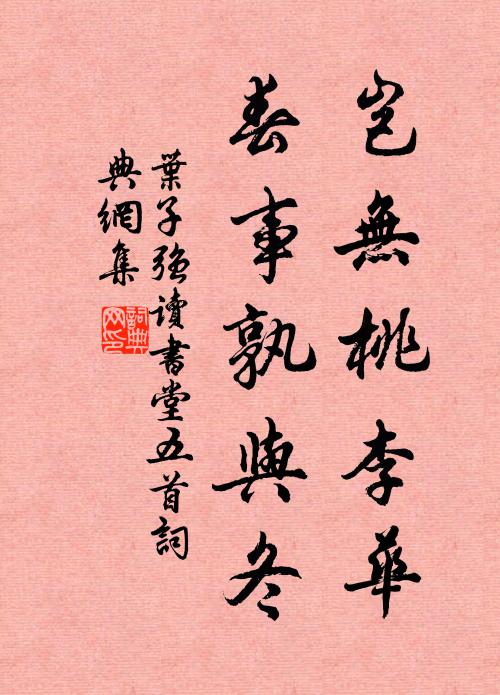 豈無桃李華
春事孰與冬
葉子強讀書堂五首詞
典網集
詞典網印